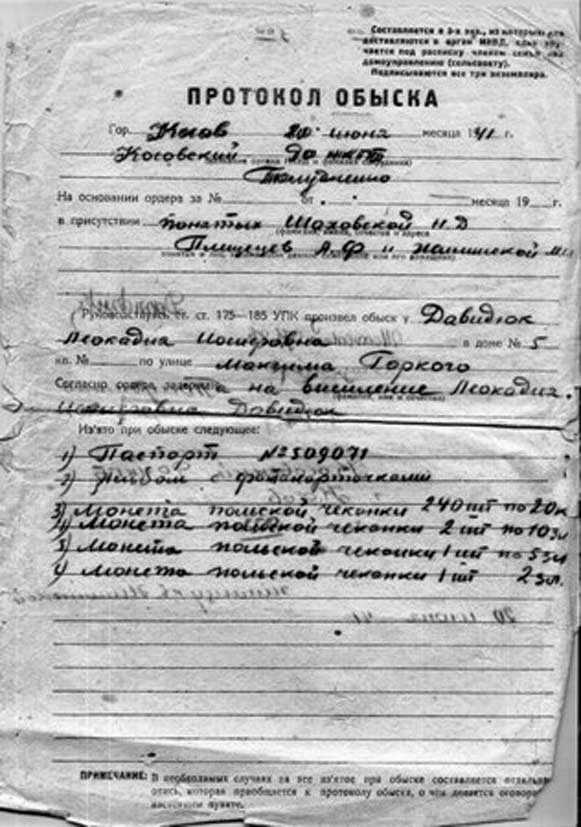 Составляется в 3-х экз., из которых два
доставляются в орган НКВД, один
вручается под расписку членам семьи или
домоуправлению (сельсовету).
Подписываются все три экземпляра.
ПРОТОКОЛ ОБЫСКА
Гор. Косов 20 июня месяца 1941 г.
Косовский
На основании ордера за № от месяца 19 г.
в присутствии понятых Шаховской Н.Д
(фамилия, имена, отчества и адреса
А.Ф и
Руководствуясь ст. ст. 175—185 УПК произвел обыск у Давидюк
Леокадия Иосифовна в доме № 5
кв. № по улице Максима Горкого
Согласно ордера на висиление Леокадия
Давидюк
Из'ято при обыске следующее:
1) Паспорт № 509071
2) Альбом фотокарточками
3) Монета польской чеконки 240 шт по 20 к
4) Монета польской чеконки 2 шт по 10 зл
5) Монета польской чеконки 1 шт по 5 зл
Монета польской чеконки 1 шт 2 зл.
20 июня 41
ПРИМЕЧАНИЕ: В необходимых случаях за все из'ятое при обыске составляется
опись, которая приобщается к протоколу обыска, о чем делается
настоящем пункте.